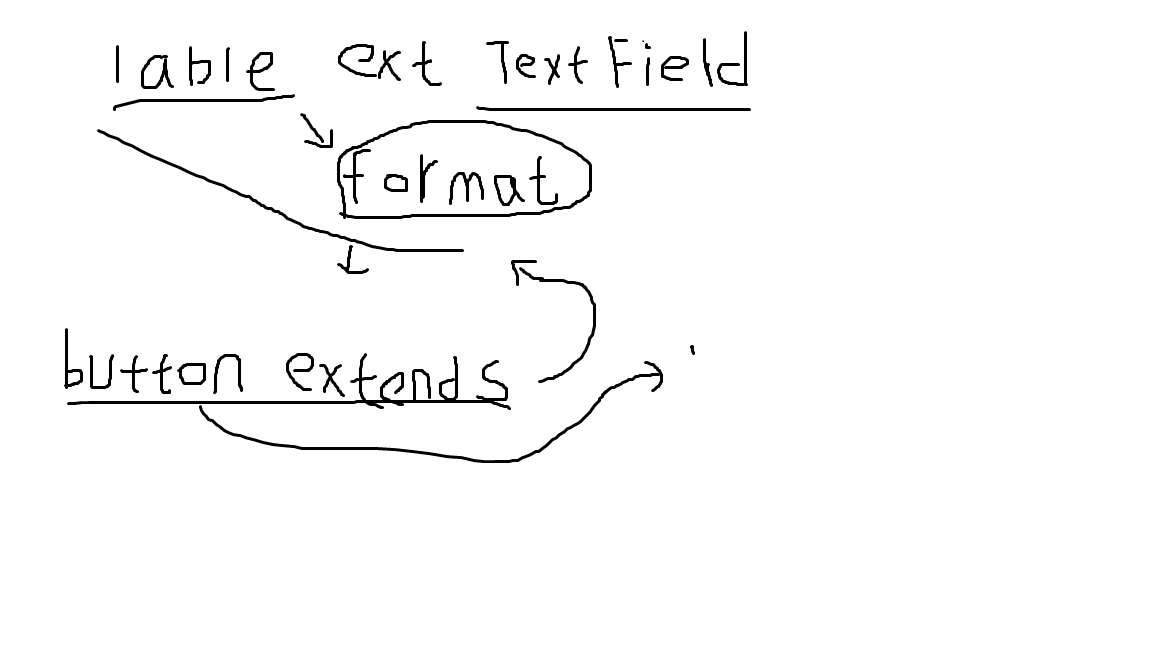 lable ext TextField
format
button extends